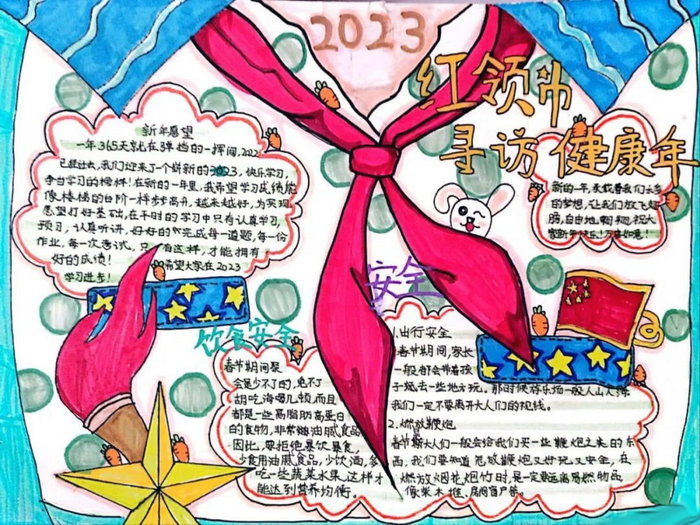 2023
红领巾
寻访健康年
新年愿望
一年365天就在弹指的一挥间,2022
已经过去,我们迎来了一个崭新的2023,快乐学习,
争当学习的榜样!在新的一年里,我希望学习成绩能
像楼梯的台阶一样步步高升,越来越好,为实现
愿望打好基础,在平时的学习中只有认真学习,
预习,认真听讲,好好的完成每一道题,每一份
作业,每一次考试。只有这样,才能拥有
好的成绩!希望大家在2023
学习进步!
新的一年,承载着我们太多
的梦想,让我们放飞翅
膀,自由地翱翔,祝大
家新年快乐!万事如意!
安全
饮食安全
春节期间聚
会是少不了的,免不了
胡吃海喝几顿,而且
都是一些高脂肪高蛋白
的食物,非常
油腻食品,
因此,要拒绝暴饮暴食,
少食用油腻食品,少饮酒,多
吃一些蔬菜水果,这样才
能达到营养均衡。
1.出行安全
春节期间,家长
一般都会带着孩
子
去一些地方玩。那时候游乐场一般人山人海
我们一定不要离开大人们的视线。
2.燃放鞭炮
春节期
大人们一般会给我们买一些鞭炮之类的东
西,我们要知道
放鞭炮又好玩又安全,在
燃放烟花炮竹时,是一定要远离易燃物品
像柴木堆、房间窗户等。